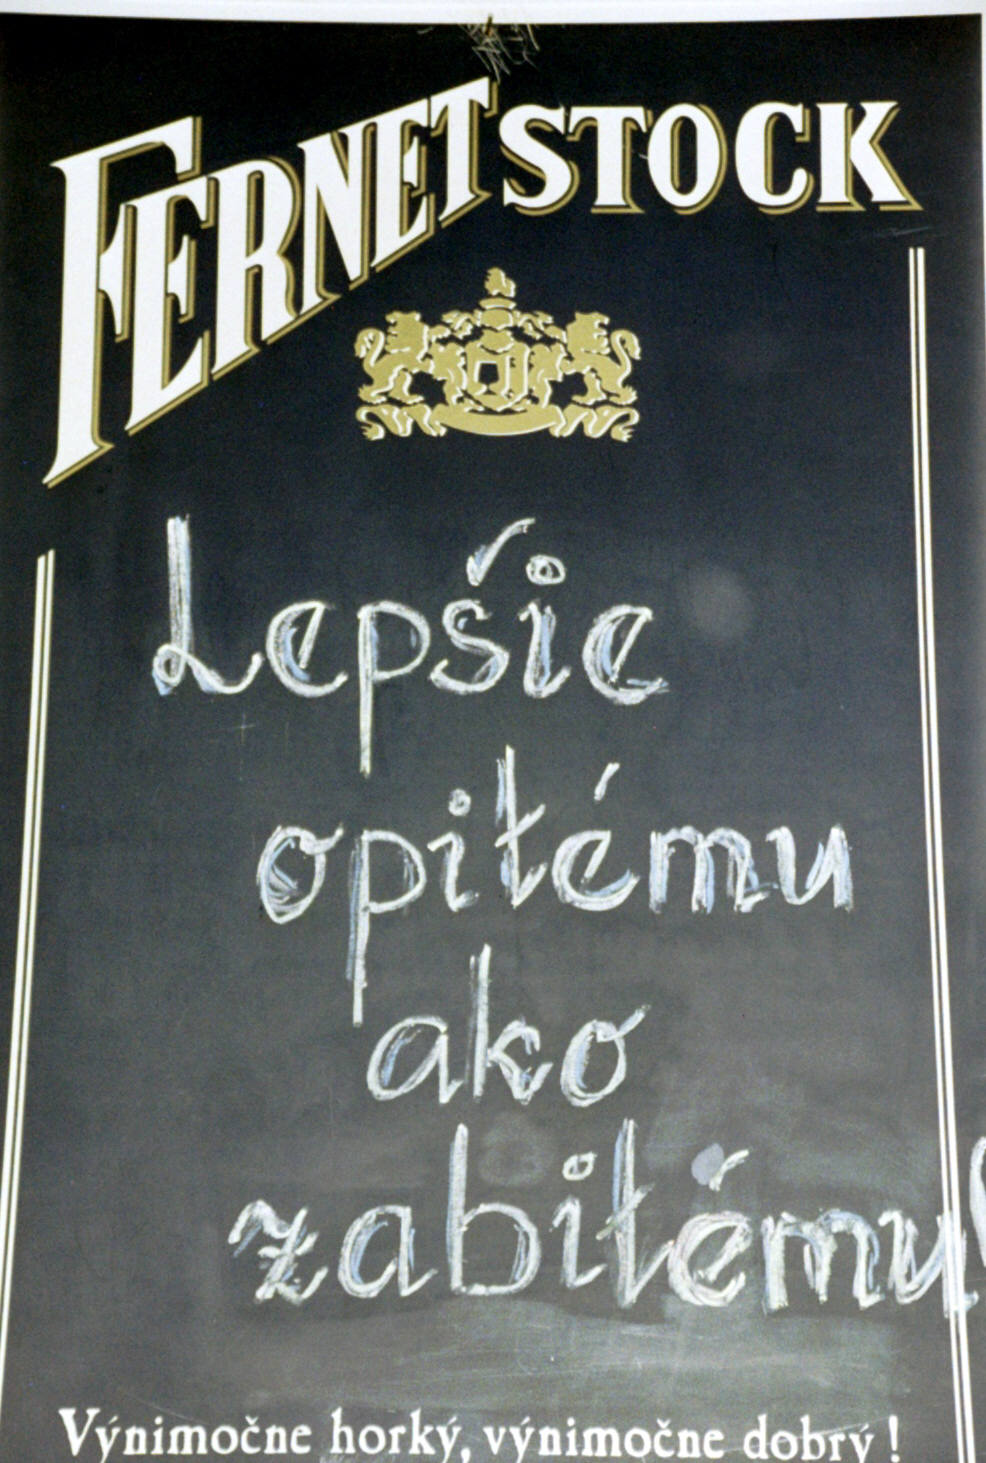 FERNET STOCK
Lepšie
opitému
ako
zabitému!
Výnimočne horký, výnimočne dobrý!